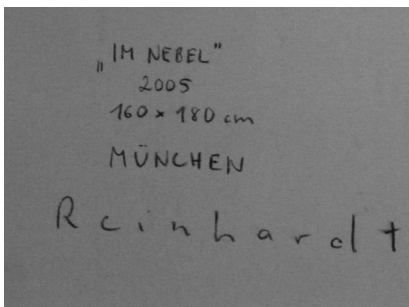 „IM NEBEL"
2005
160 × 180 cm
MÜNCHEN
Reinhardt